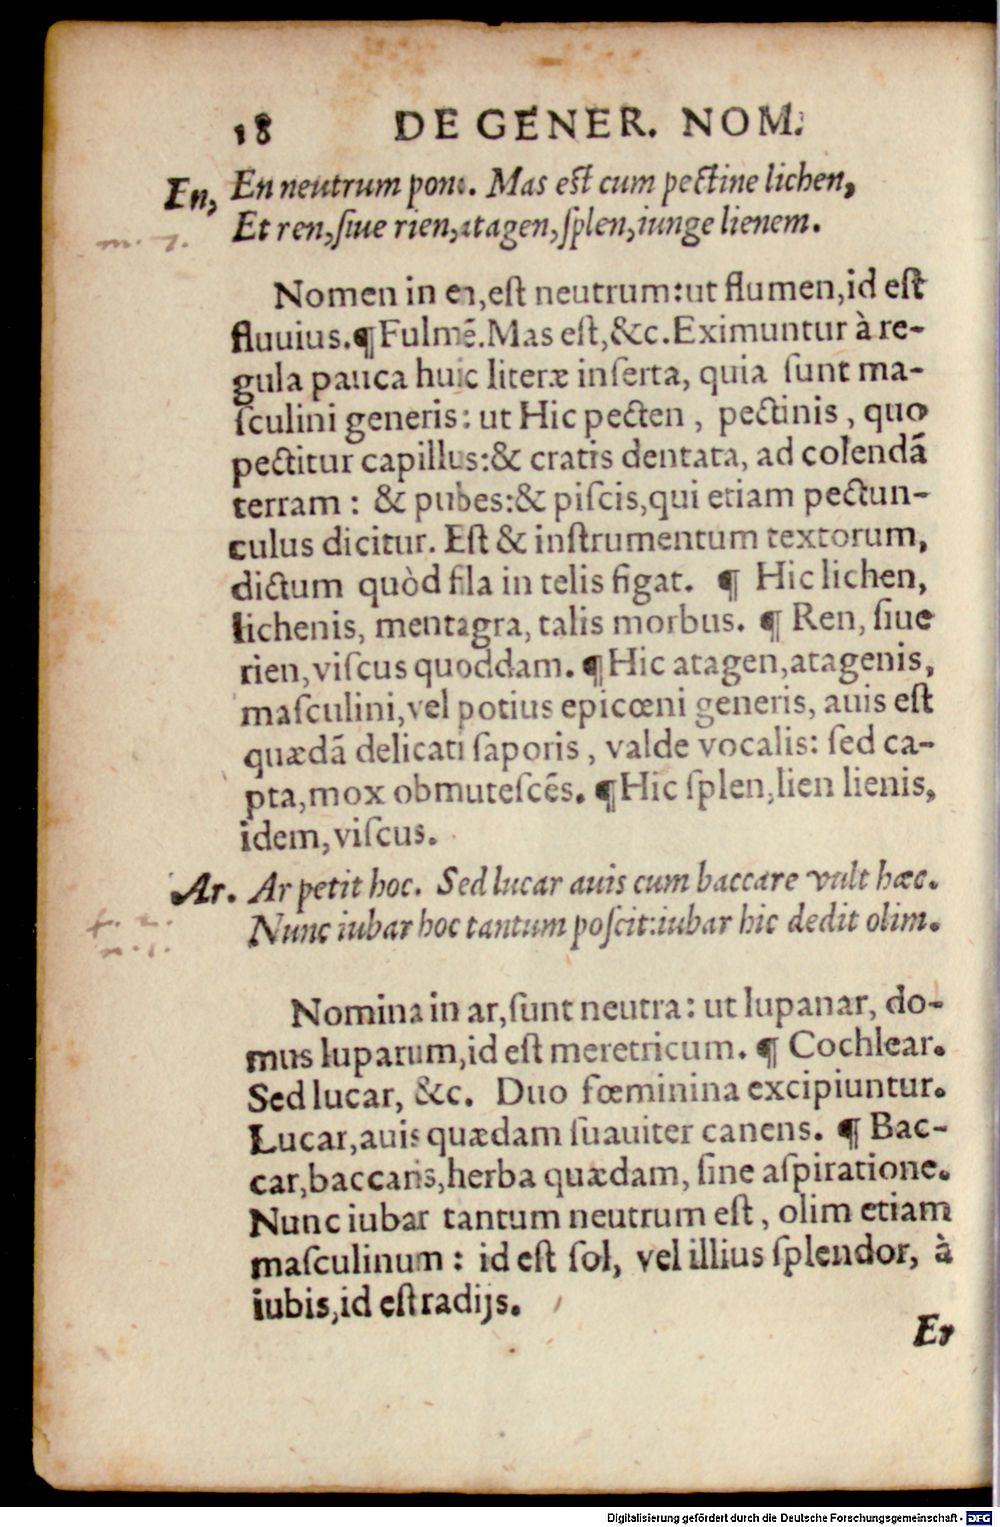 18 DE GENER. NOM.
En, En neutrum pone. Mas est cum pectine lichen,
m. 7. Et ren, ſiue rien, atagen, ſplen, iunge lienem.
Nomen in en, eſt neutrum: ut flumen, id eſt
fluuius. ¶ Fulmẽ. Mas eſt, &c. Eximuntur à re-
gula pauca huic literæ inſerta, quia ſunt ma-
ſculini generis: ut Hic pecten, pectinis, quo
pectitur capillus: & cratis dentata, ad colendã
terram: & pubes: & piſcis, qui etiam pectun-
culus dicitur. Eſt & inſtrumentum textorum,
dictum quòd fila in telis figat. ¶ Hic lichen,
lichenis, mentagra, talis morbus. ¶ Ren, ſiue
rien, viſcus quoddam. ¶ Hic atagen, atagenis,
maſculini, vel potius epicœni generis, auis eſt
quædã delicati ſaporis, valde vocalis: ſed ca-
pta, mox obmuteſcẽs. ¶ Hic ſplen, lien lienis,
idem, viſcus.
Ar. Ar petit hoc. Sed lucar auis cum baccare vult hæc.
f. 2. Nunc iubar hoc tantum poſcit: iubar hic dedit olim.
n. 1.
Nomina in ar, ſunt neutra: ut lupanar, do-
mus luparum, id eſt meretricum. ¶ Cochlear.
Sed lucar, &c. Duo fœminina excipiuntur.
Lucar, auis quædam ſuauiter canens. ¶ Bac-
car, baccaris, herba quædam, ſine aſpiratione.
Nunc iubar tantum neutrum eſt, olim etiam
maſculinum: id eſt ſol, vel illius ſplendor, à
iubis, id eſt radijs.
Er
Digitalisierung gefördert durch die Deutsche Forschungsgemeinschaft - DFG